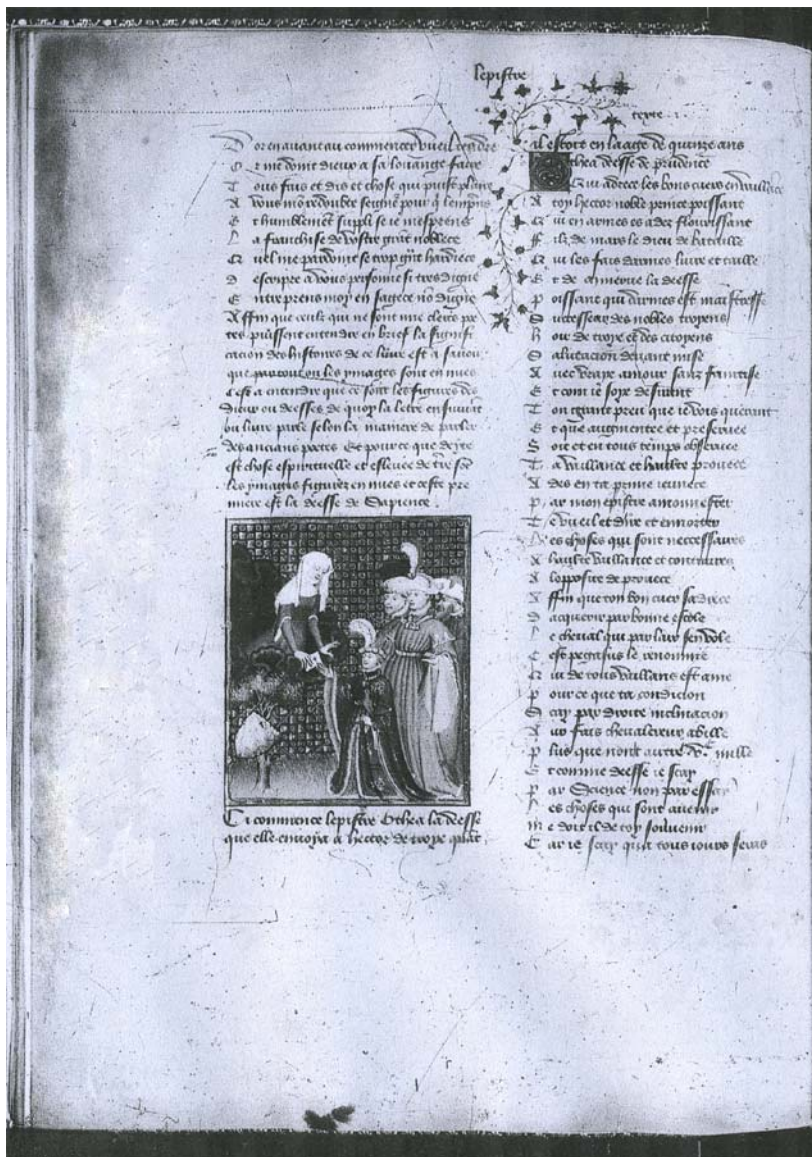 lepistre
D or en avant au commencer vueil tendre
O r me doint dieux a sa louange faire
T ous fais et dis et chose qui puist plaire
A vous mõ redoubte seignr pour q lempris
E t humblement suppli se ie mesprens
L a franchise de vostre grãt noblece
Q uel me pardoint se trop grãt hardiece
D escripre a vous personne si tres digne
E ntreprens moy en sagece nõ digne
Affin que ceulz qui ne sont mie clers po
etes puissent entendre en brief la signifi
cacion des histoires de ce livre est a savoir
que par tout ou les ymages sont en nues
cest a entendre que ce sont les figures des
dieux ou deesses de quoy la letre ensuivãt
ou livre parle selon la maniere de parler
des ancians poetes Et pour ce que deyte
est chose espirituelle et eslevee de tre sõt
les ymages figurez en nues et ceste pre
miere est la deesse de Sapience
Ci commence lepistre Othea la deesse
que elle envoya a hector de troye quãt
texte
il estoit en laage de quinze ans
Othea deesse de prudence
Q ui adrece les bons cuers en vaillãce
A toy hector noble prince poissant
Q ui en armes es adez flourissant
Ff ilz de mars le dieu de bataille
Q ui les fais darmes livre et taille
E t de minerve la deesse
P oissant qui darmes est maistresse
S uccesseur des nobles troyens
H oir de troye et des citoyens
S alutacion devant mise
A vec vraye amour sanz faintise
E t com ie soye desirent
T on grant preu que ie vois querant
E t que augmentee et preservee
S oit et en tous temps observee
T a vaillance et haulte prouece
A des en ta prime ieunece
P ar mon epistre amonnester
T e vueil et dire et enorter
L es choses qui sont neccessaires
A haulte vaillance et contraires
A lopposite de prouece
A ffin que ton bon cuer sadrece
D acquerir par bonne escole
L e cheval qui par lair sen vole
C est pegasus le renomme
Q ui de tous vaillans est ame
P our ce que ta condicion
S cay par droite inclinacion
A ux fais chevalereux abille
P lus que nont autre .V.c mille
E t comme deesse ie scay
P ar Science non par essay
L es choses qui sont avenir
M e doit il de toy souvenir
C ar ie scay qua tous iours seras